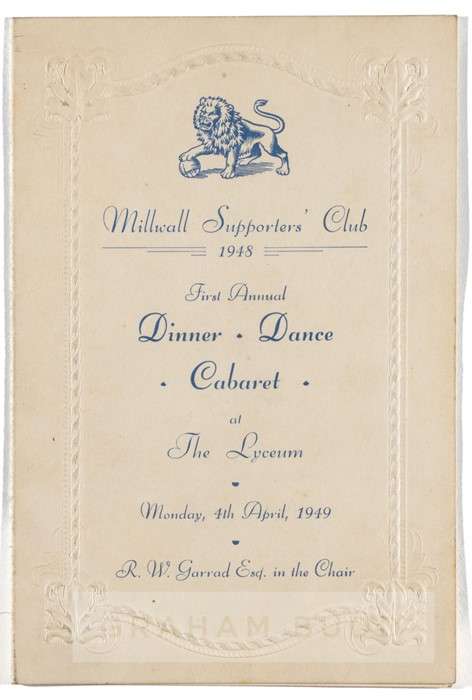 Millwall Supporters' Club
1948
First Annual
Dinner • Dance
• Cabaret •
at
The Lyceum
Monday, 4th April, 1949
R. W. Garrad Esq. in the Chair
GRAHAM BUDD